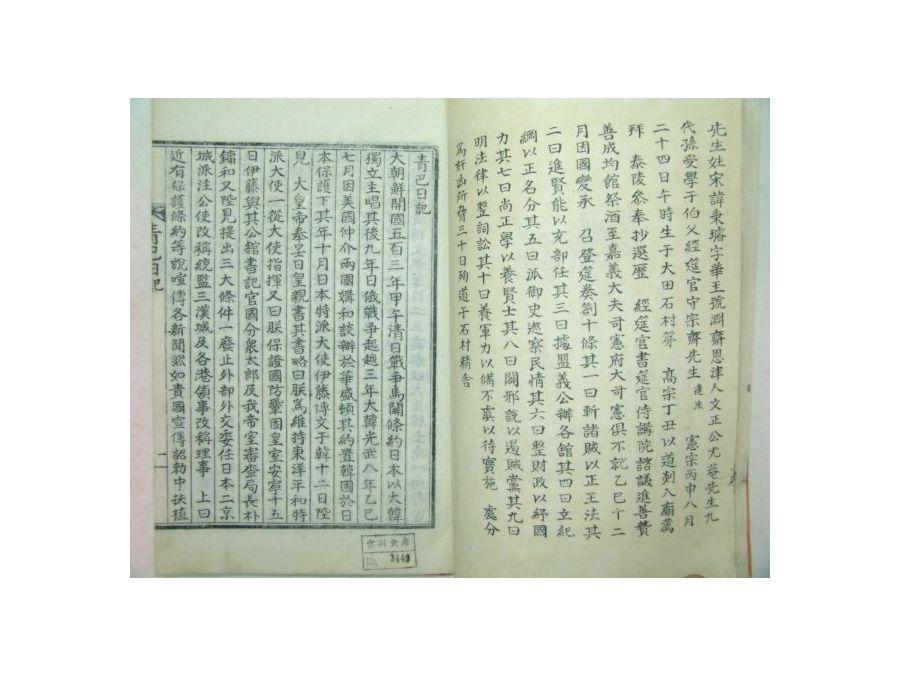 先生姓宋諱秉璿字華玉號淵齋恩津人文正公尤菴先生九
代孫受學于伯父經筵官守宗齋先生達洙 憲宗丙申八月
二十四日午時生于大田石村第 高宗丁丑以道剡入廟薦
拜 泰陵叅奉抄選歷 經筵官書筵官侍講院諮議進善贊
善成均館祭酒至嘉義大夫司憲府大司憲俱不就乙巳十二
月因國變承 召登筵奏劄十條其一曰斬諸賊以正王法其
二曰進賢能以充部任其三曰據盟義公辦各舘其四曰立紀
綱以正名分其五曰派御史巡察民情其六曰整財政以紓國
力其七曰尚正學以養賢士其八曰闢邪說以遏賊黨其九曰
明法律以整詞訟其十曰養軍力以備不虞以待實施 處分
爲奸凶所脅三十日殉道于石村精舍
青巴日記
大朝鮮開國五百三年甲午清日戰爭馬關條約日本以大韓
獨立主唱其後九年日俄戰爭起越三年大韓光武八年乙巳
七月因美國仲介兩國媾和談辦於華盛頓其約置韓國於日
本保護下其年十月日本特派大使伊藤博文于韓十二日陛
見 大皇帝奉呈日皇親書其書略曰朕爲維持東洋平和特
派大使一從大使指揮又曰朕保護國防鞏固皇室安寧十五
日伊藤與其公舘書記官國分衆太郎及我帝室審查局長朴
鏞和又陛見提出三大條件一廢止外部外交委任日本二京
城派注公使改稱統監三漢城及各港領事改稱理事 上曰
近有保護條約等說喧傳各新聞然如貴國宣傳詔勅中扶植
青巴日記
一
3443